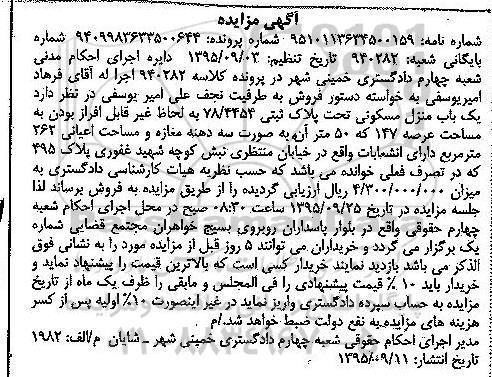 آگهی مزایده
شماره نامه: ۹۵۱۰۱۱۳۶۳۴۵۰۰۱۵۹ شماره پرونده: ۹۴۰۹۹۸۳۶۳۳۵۰۰۶۴۴ شماره
بایگانی شعبه: ۹۴۰۲۸۲ تاریخ تنظیم: ۱۳۹۵/۰۹/۰۳ دایره اجرای احکام مدنی
شعبه چهارم دادگستری خمینی شهر در پرونده کلاسه ۹۴۰۲۸۲ اجرا له آقای فرهاد
امیریوسفی به خواسته دستور فروش به طرفیت نجف علی امیر یوسفی در نظر دارد
یک باب منزل مسکونی تحت پلاک ثبتی ۷۸/۴۴۵۴ به لحاظ غیر قابل افراز بودن به
مساحت عرصه ۱۴۷ که ۵۰ متر آن به صورت سه دهنه مغازه و مساحت اعیانی ۲۶۲
مترمربع دارای انشعابات واقع در خیابان منتظری نبش کوچه شهید غفوری پلاک ۴۹۵
که در تصرف فعلی خوانده می باشد که حسب نظریه هیات کارشناسی دادگستری به
میزان ۴/۳۰۰/۰۰۰/۰۰۰ ریال ارزیابی گردیده را از طریق مزایده به فروش برساند لذا
جلسه مزایده در تاریخ ۱۳۹۵/۰۹/۲۵ ساعت ۰۸:۳۰ صبح در محل اجرای احکام شعبه
چهارم حقوقی واقع در بلوار پاسداران روبروی بسیج خواهران مجتمع قضایی شماره
یک برگزار می گردد و خریداران می توانند ۵ روز قبل از مزایده مورد را به نشانی فوق
الذکر می باشد بازدید نمایند خریدار کسی است که بالاترین قیمت را پیشنهاد نماید و
خریدار باید ۱۰ % قیمت پیشنهادی را فی المجلس و مابقی را ظرف یک ماه از تاریخ
مزایده به حساب سپرده دادگستری واریز نماید در غیر اینصورت ۱۰% اولیه پس از کسر
هزینه های مزایده به نفع دولت ضبط خواهد شد./م
مدیر اجرای احکام حقوقی شعبه چهارم دادگستری خمینی شهر ـ شایان م/الف: ۱۹۸۲
تاریخ انتشار: ۱۳۹۵/۰۹/۱۱